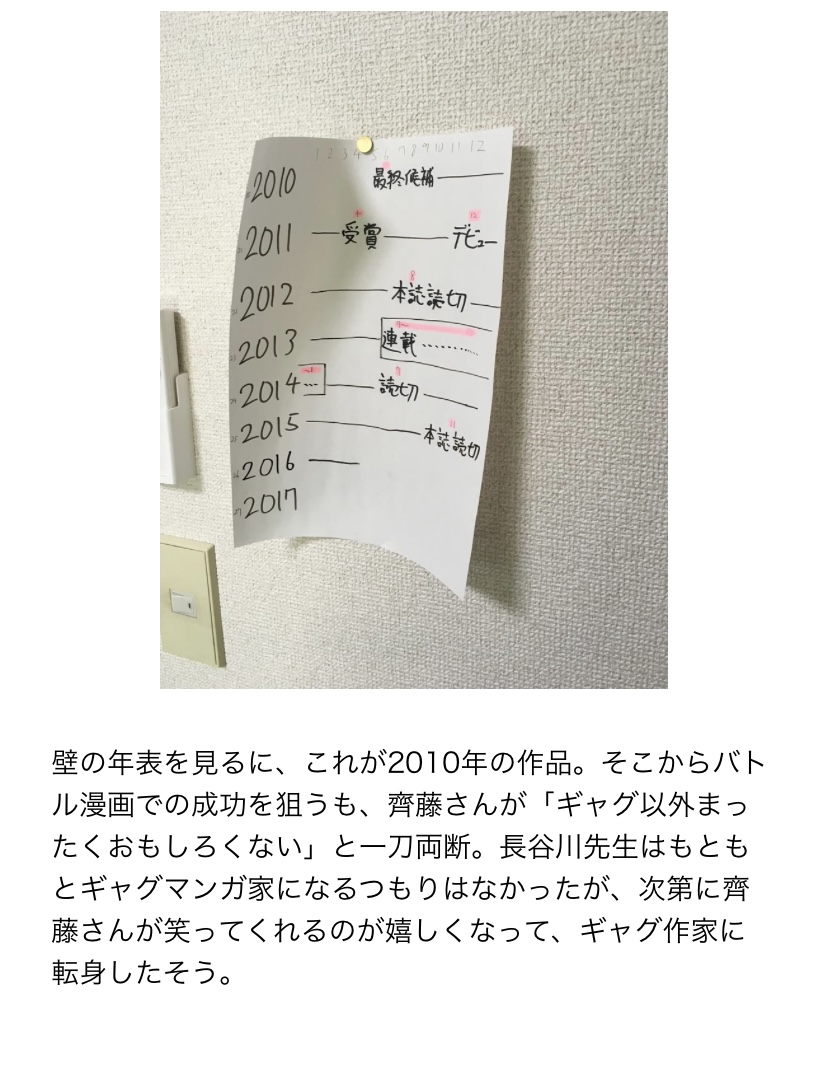 1 2 3 4 5 6 7 8 9 10 11 12
2010 最終候補
2011 受賞 デビュー
12
8
2012 本誌読切
2013 連載………
2014 … 読切
11
2015 本誌読切
2016
2017
壁の年表を見るに、これが2010年の作品。そこからバト
ル漫画での成功を狙うも、齊藤さんが「ギャグ以外まっ
たくおもしろくない」と一刀両断。長谷川先生はもとも
とギャグマンガ家になるつもりはなかったが、次第に齊
藤さんが笑ってくれるのが嬉しくなって、ギャグ作家に
転身したそう。